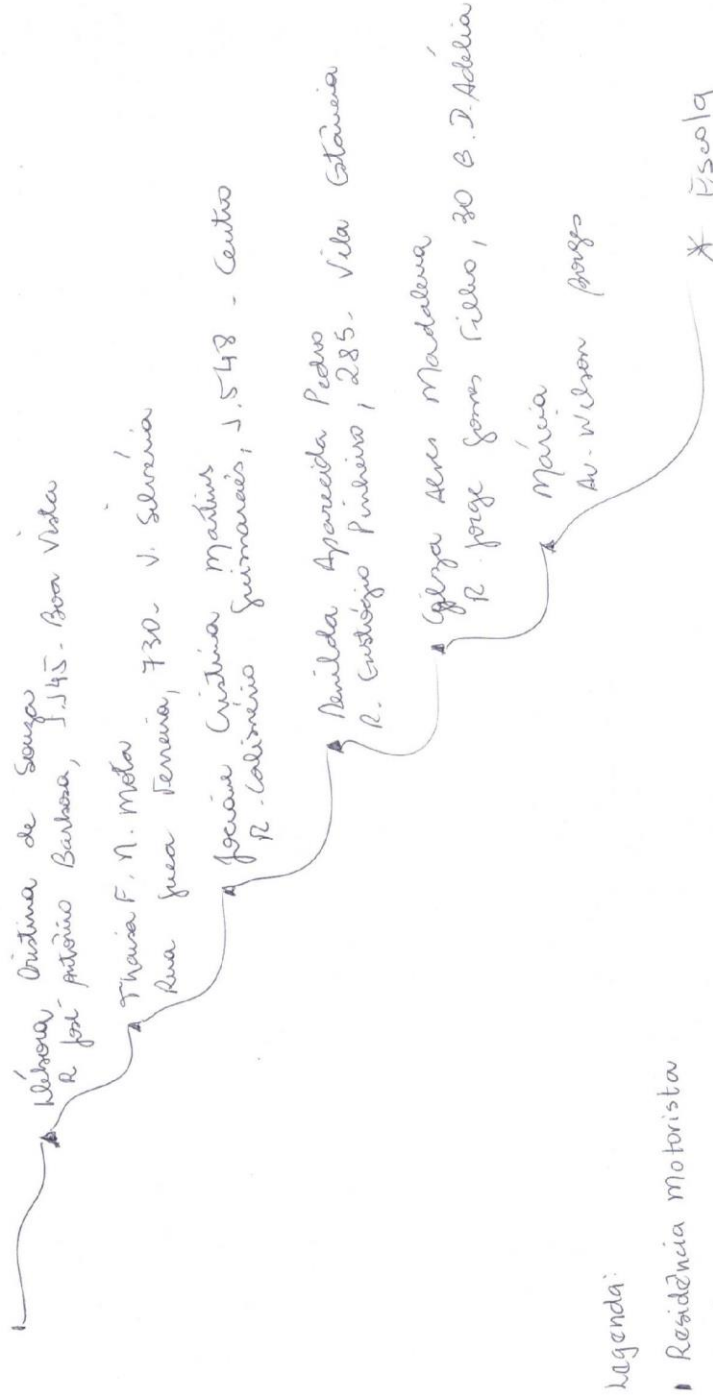 Débora Cristina de Souza
R José Antônio Barbosa, 1.145 - Boa Vista
Thaisa F. N. Mota
Rua Ferreira, 730 - V. Silvéria
Josiane Cristina Martins
R. Guimarães, 1.548 - Centro
Aparecida Pedro
R. Pinheiro, 285 - Vila
Alves Madalena
R. Jorge Gomes Filho, 30 B. D. Adélia
Márcia
Av. Wilson Borges
* Escola
Legenda:
Residência motorista